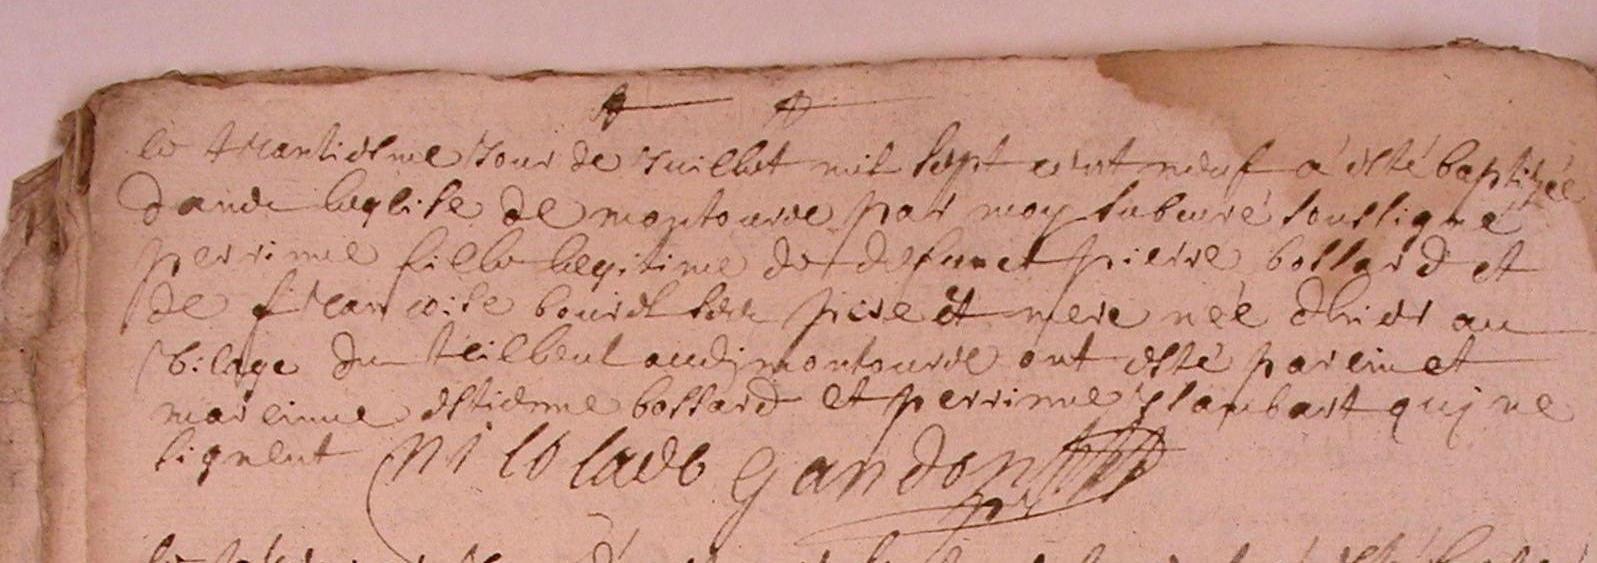 le trantiesme Jour de Juillet mil sept cent neuf a esté baptisée
dans leglise de montourde par moy subcuré soussigné
perrinne fille legitime de defunct pierre bossard et
de francoise pere et mere née dhier au
vilage du teilleul audj montourde ont esté parein et
mareinne estienne bossard et perrinne qui ne
signent nicolas gandon